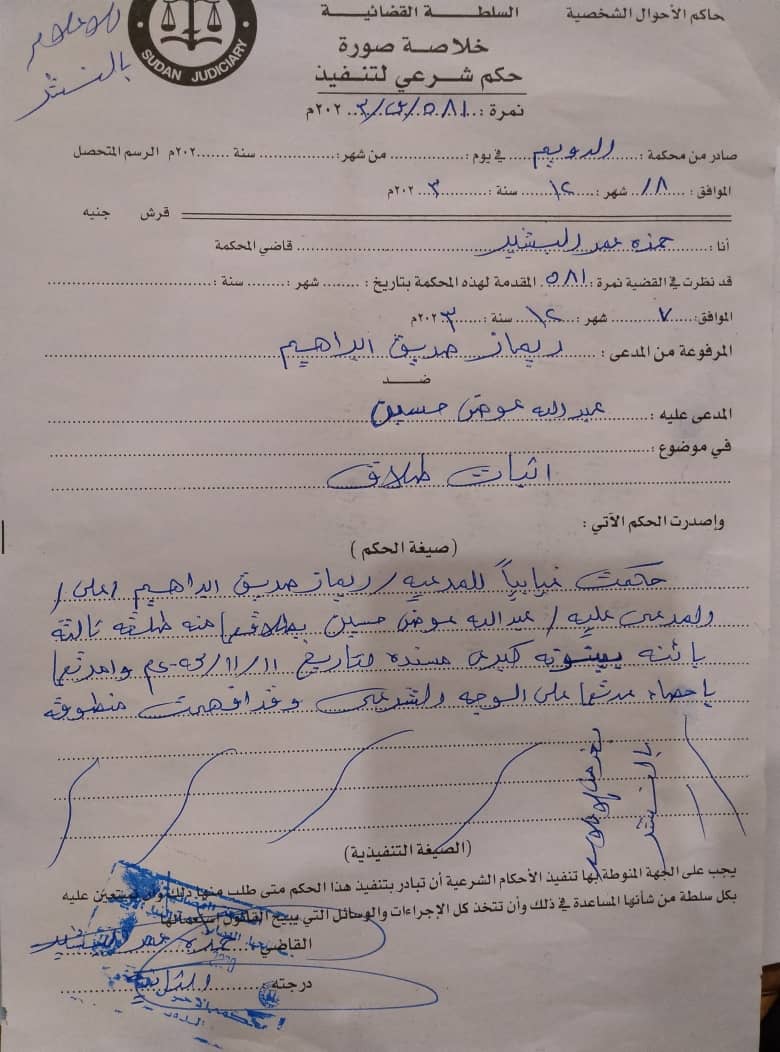 حاكم الأحوال الشخصية
السلطة القضائية
SUDAN JUDICIARY
للاعلام
بالنشر
خلاصة صورة
حكم شرعي لتنفيذ
نمرة : ٥٨١/ق/٢٠٢٣م
صادر من محكمة : الدويم في يوم : من شهر : سنة ٢٠٢م الرسم المتحصل
الموافق : ١٨ شهر : ١٢ سنة : ٢٠٢٣م
قرش جنيه
أنا : حمزه عمر البشير قاضي المحكمة
قد نظرت في القضية نمرة : ٥٨١ المقدمة لهذه المحكمة بتاريخ : شهر : سنة :
الموافق : ٧ شهر : ١٢ سنة : ٢٠٢٣م
المرفوعة من المدعى : ريماز صديق ابراهيم
ضد
المدعى عليه : عبدالله عوض حسين
في موضوع :
اثبات طلاق
وإصدرت الحكم الآتي :
(صيغة الحكم)
حكمت غيابياً للمدعيه / ريماز صديق ابراهيم / على /
المدعى عليه / عبدالله عوض حسين بطلاقها منه طلقه ثالثة
بائنه بينونه كبرى مسنده لتاريخ ١١/١١/ وامرتها
باحصاء عدتها على الوجه الشرعى وقد افهمت منطوقه
بالنشر
(الصيغة التنفيذية)
يجب على الجهة المنوطة بها تنفيذ الأحكام الشرعية أن تبادر بتنفيذ هذا الحكم متى طلب منها ذلك وأن يتعين عليه
بكل سلطة من شأنها المساعدة في ذلك وأن تتخذ كل الإجراءات والوسائل التي يبيح القانون إستعمالها
القاضي : حمزه عمر البشير
درجته : الثانية